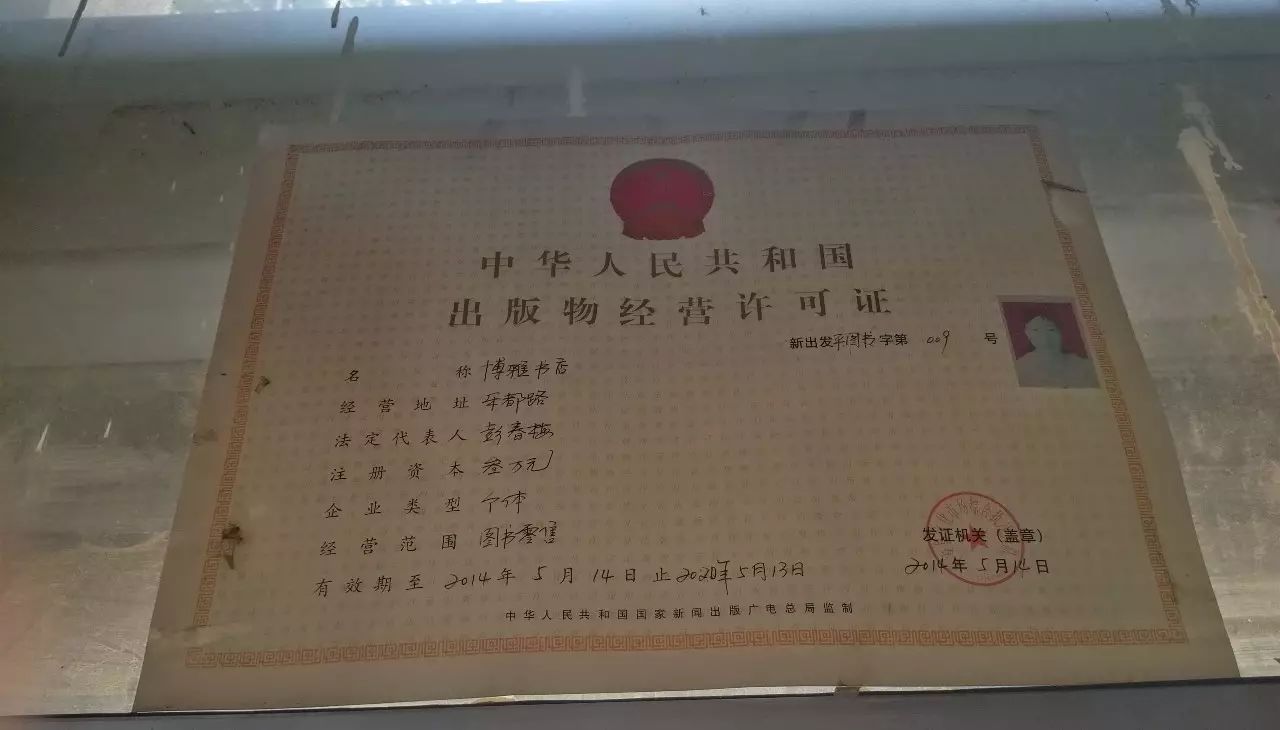 中华人民共和国
出版物经营许可证
新出发平图书字第 009 号
名称 博雅书店
经营地址 平都路
法定代表人 彭春梅
注册资本 叁万元
企业类型 个体
经营范围 图书零售
发证机关（盖章）
有效期至 2014年5月14日止2020年5月13日
2014年5月14日
中华人民共和国国家新闻出版广电总局监制